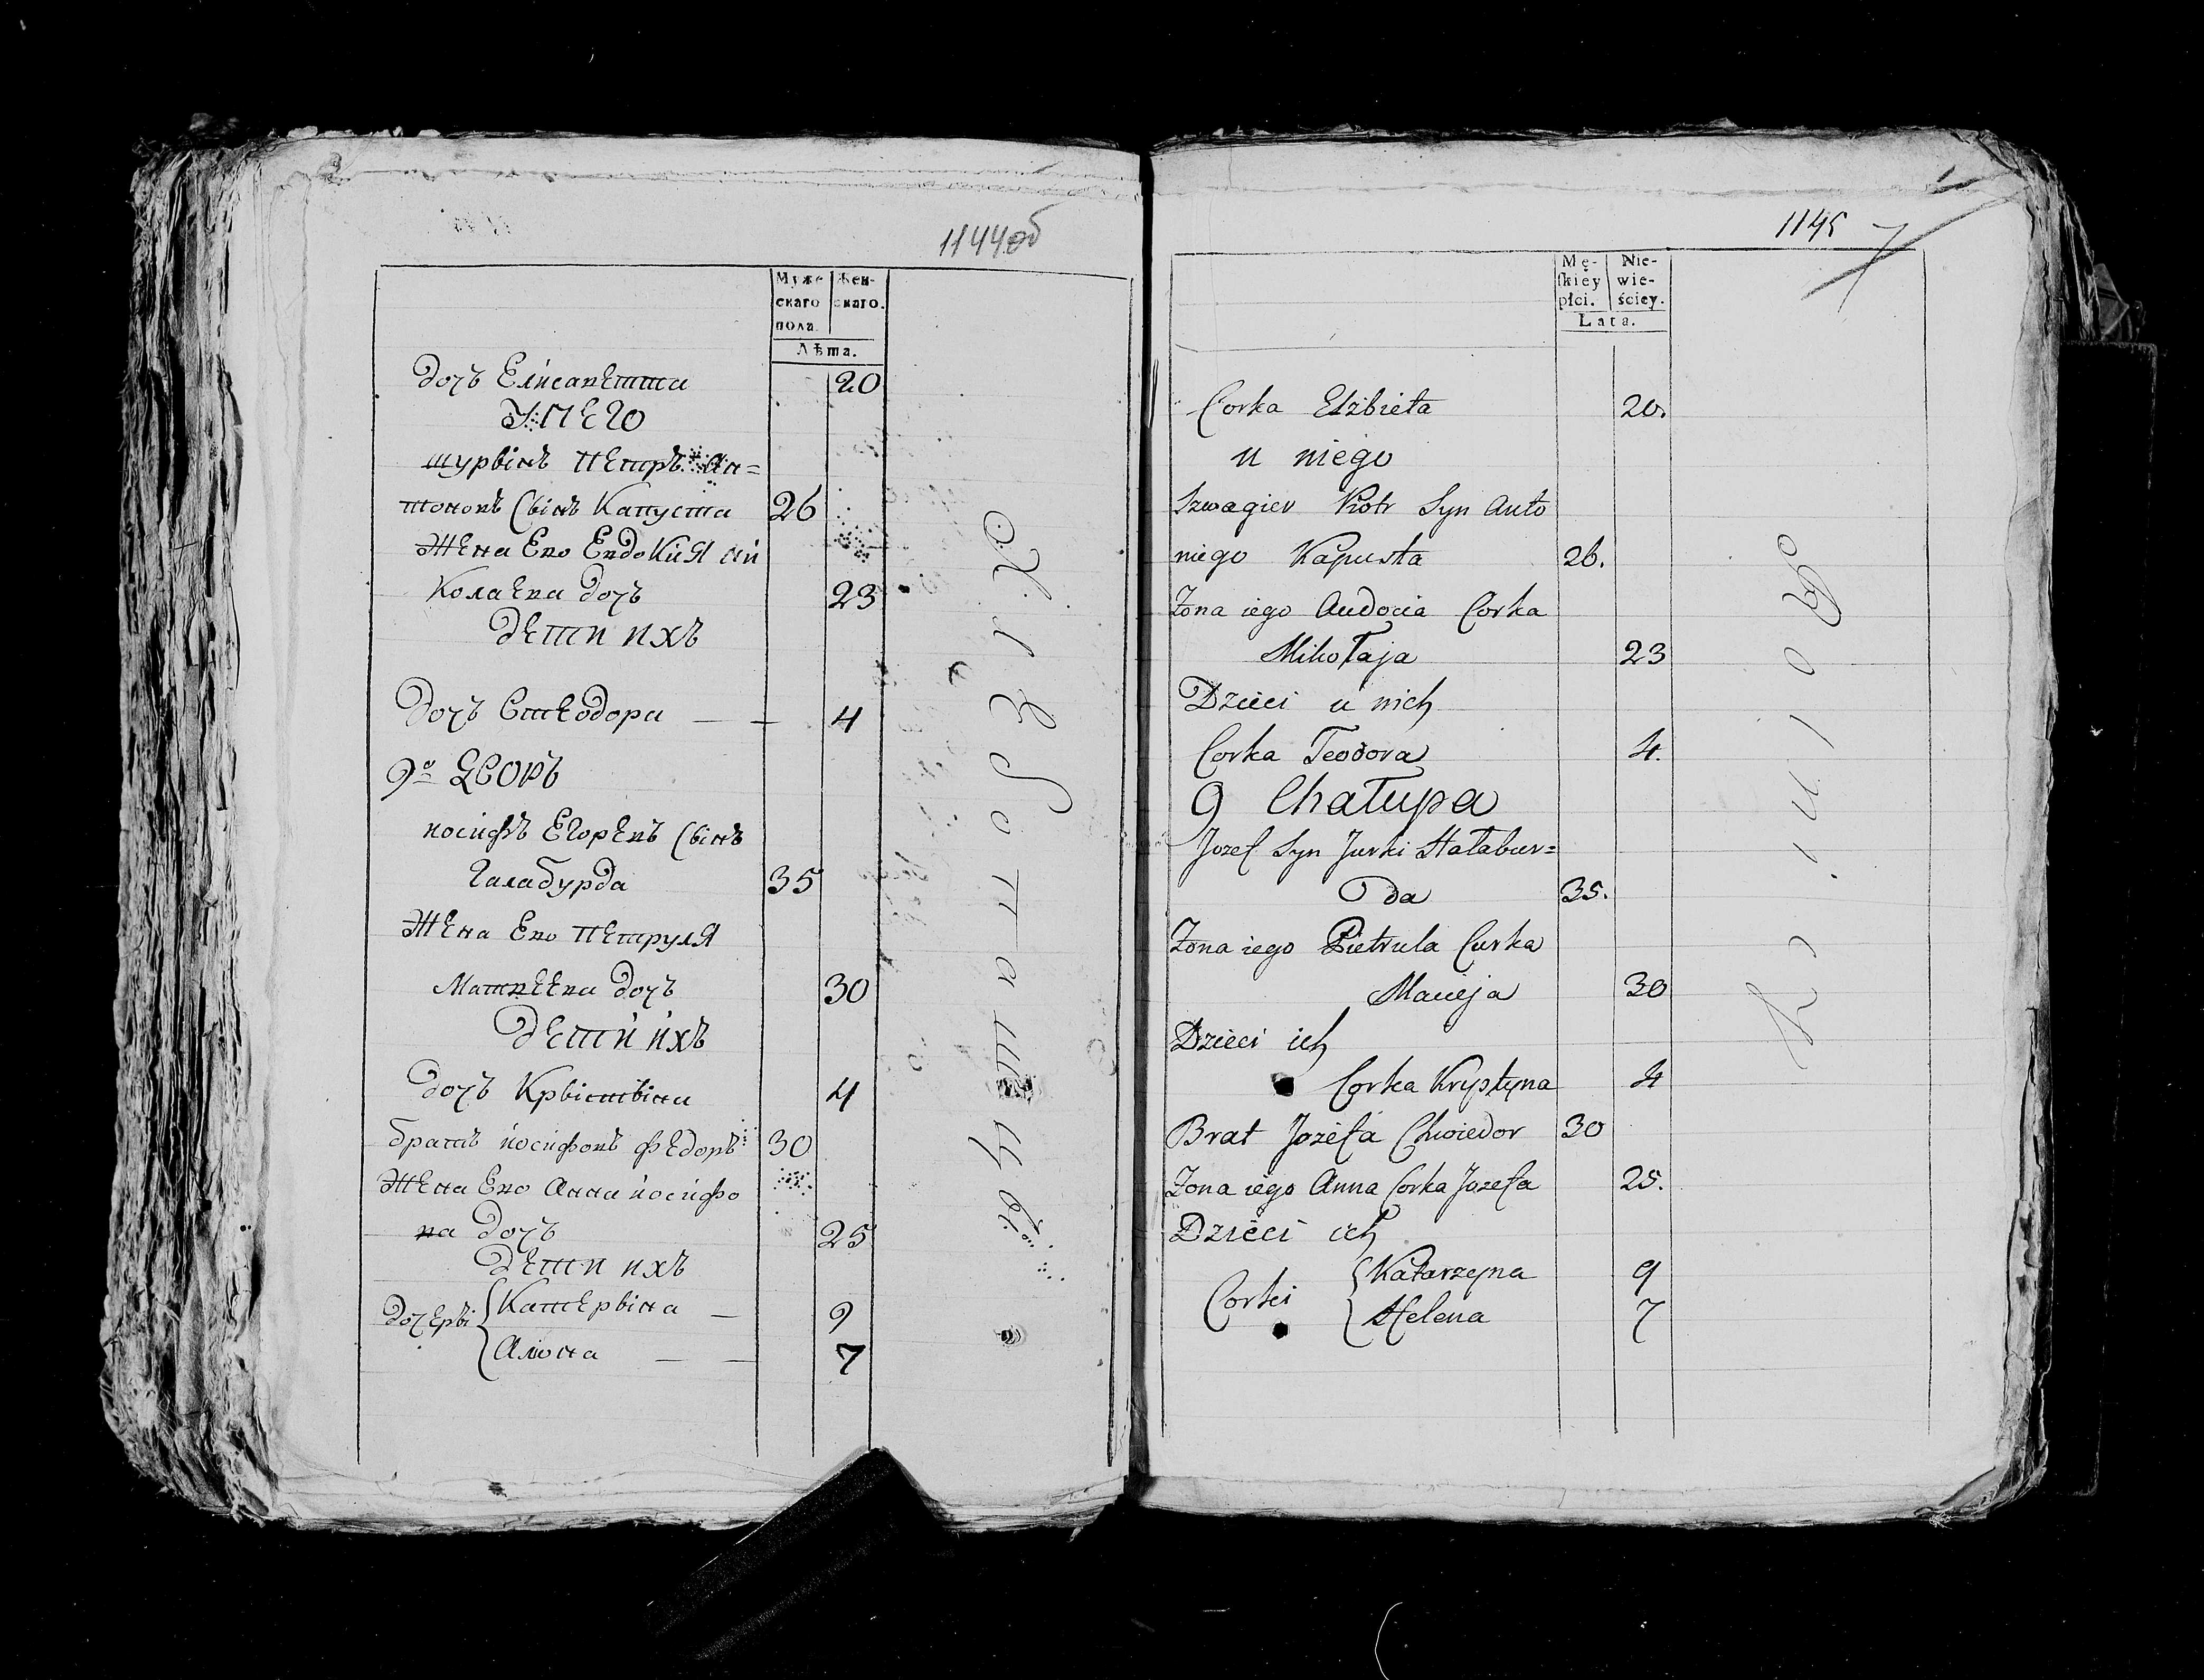 1144об
Муже
скаго
пола.
Жен-
скаго.
Лѣта.
дочъ Елисаветта 20
У НЕГО
шурвінъ Петръ Ан=
тоновъ Сынъ Капуста 26
Жена Ево Евдокия Ни
Колаева дочъ 23
Дети ихъ
дочъ Стеодора — — 4
9й ДВОРЪ
иосифъ Егоревъ Сынъ
Галабурда 35
Жена Ево Петруля
Матвеева дочъ 30
Дети ихъ
дочъ Крыстына 4
братъ иосифовъ Федоръ 30
Жена Ево Анна иосифо
ва дочъ 25
Дети ихъ
дочеры { Катерына — 9
Алюна — — 7
1145
Mę-
ſkiey
płci.
Nie-
wie-
ściey.
Lata.
Corka Elżbieta 20.
u niego
Szwagier Piotr Syn Anto
niego Kapusta 26.
Żona iego Audocia Corka
Mikołaja 23
Dzieci u nich
Corka Teodora 4.
9 Chałupa
Jozef Syn Jurki Hałabur=
da 35.
Żona iego Pietrula Curka
Macieja 30
Dzieci ich
Corka Krystyna 4
Brat Jozefa Chwiedor 30
Żona iego Anna Corka Jozefa 25.
Dzieci ich
Corki { Katarzyna 9
Helena 7